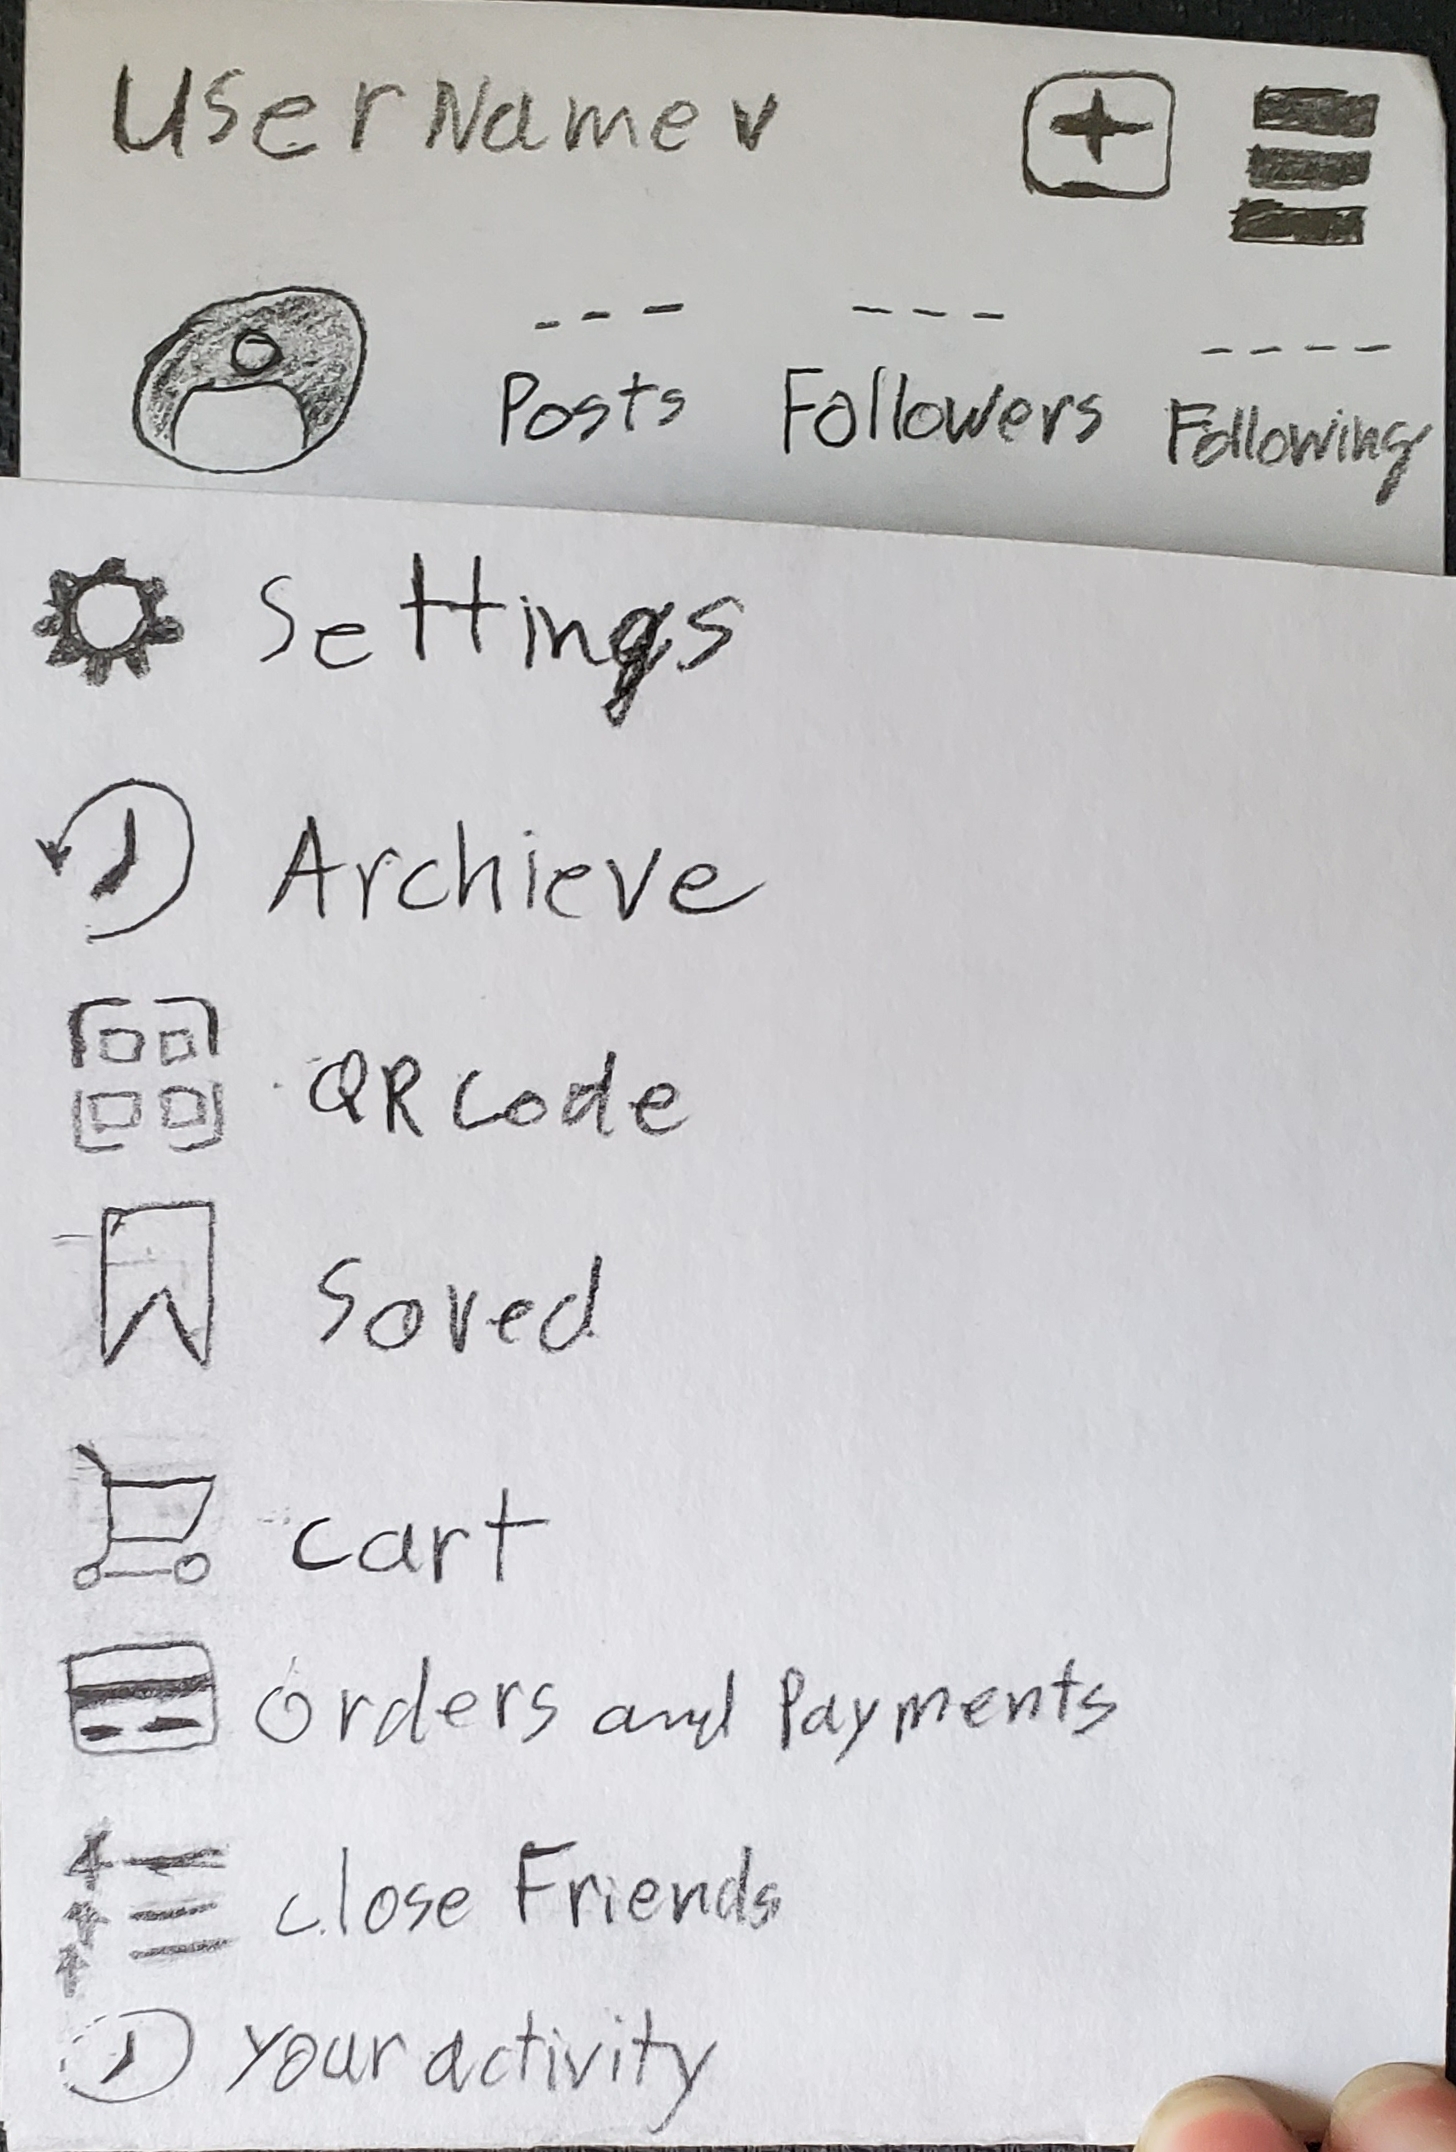 UserName v
--- --- ----
Posts Followers Following
Settings
Archieve
QR code
Saved
cart
Orders and Payments
close Friends
Your activity